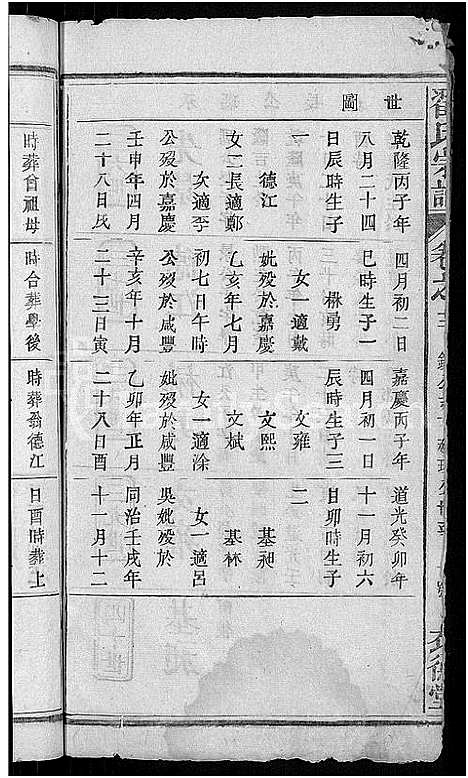 翟氏宗譜
卷之
世圖
乾隆丙子年
八月二十四
日辰時生子
一
德江
女二長適鄭
次適李
公歿於嘉慶
壬申年四月
二十八日戌
時葬曾祖母
四月初二日
巳時生子一
楙勇
女一適戴
妣歿於嘉慶
乙亥年七月
初七日午時
公歿於咸豐
辛亥年十月
二十三日寅
時合葬學後
嘉慶丙子年
四月初一日
辰時生子三
文雍
文熙
文斌
女一適涂
妣歿於咸豐
乙卯年正月
二十八日酉
時葬翁德江
道光癸卯年
十一月初六
日卯時生子
二
基昶
基林
女一適呂
吳妣歿於
同治壬戌年
十一月十二
日酉時葬上